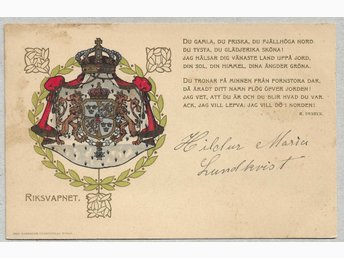 DU GAMLA, DU FRISKA, DU FJÄLLHÖGA NORD
DU TYSTA, DU GLÄDJERIKA SKÖNA!
JAG HÄLSAR DIG VÄNASTE LAND UPPÅ JORD,
DIN SOL, DIN HIMMEL, DINA ÄNGDER GRÖNA.
DU TRONAR PÅ MINNEN FRÅN FORNSTORA DAR,
DÅ ÄRADT DITT NAMN FLÖG ÖFVER JORDEN
JAG VET, ATT DU ÄR OCH DU BLIR HVAD DU VAR.
ACK, JAG VILL LEFVA, JAG VILL DÖ I NORDEN!
R. DYBECK.
Hildur Maria
Lundkvist
RIKSVAPNET.